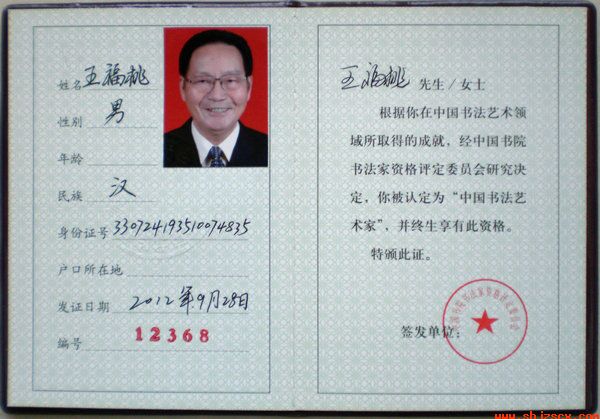 姓名 王福桃
性别 男
年龄
民族 汉
身份证号 330724193510074835
户口所在地
发证日期 2012年9月28日
编号 12368
王福桃 先生／女士
根据你在中国书法艺术领
域所取得的成就，经中国书院
书法家资格评定委员会研究决
定，你被认定为“中国书法艺
术家”，并终生享有此资格。
特颁此证。
签发单位：
中国书院书法家资格评定委员会